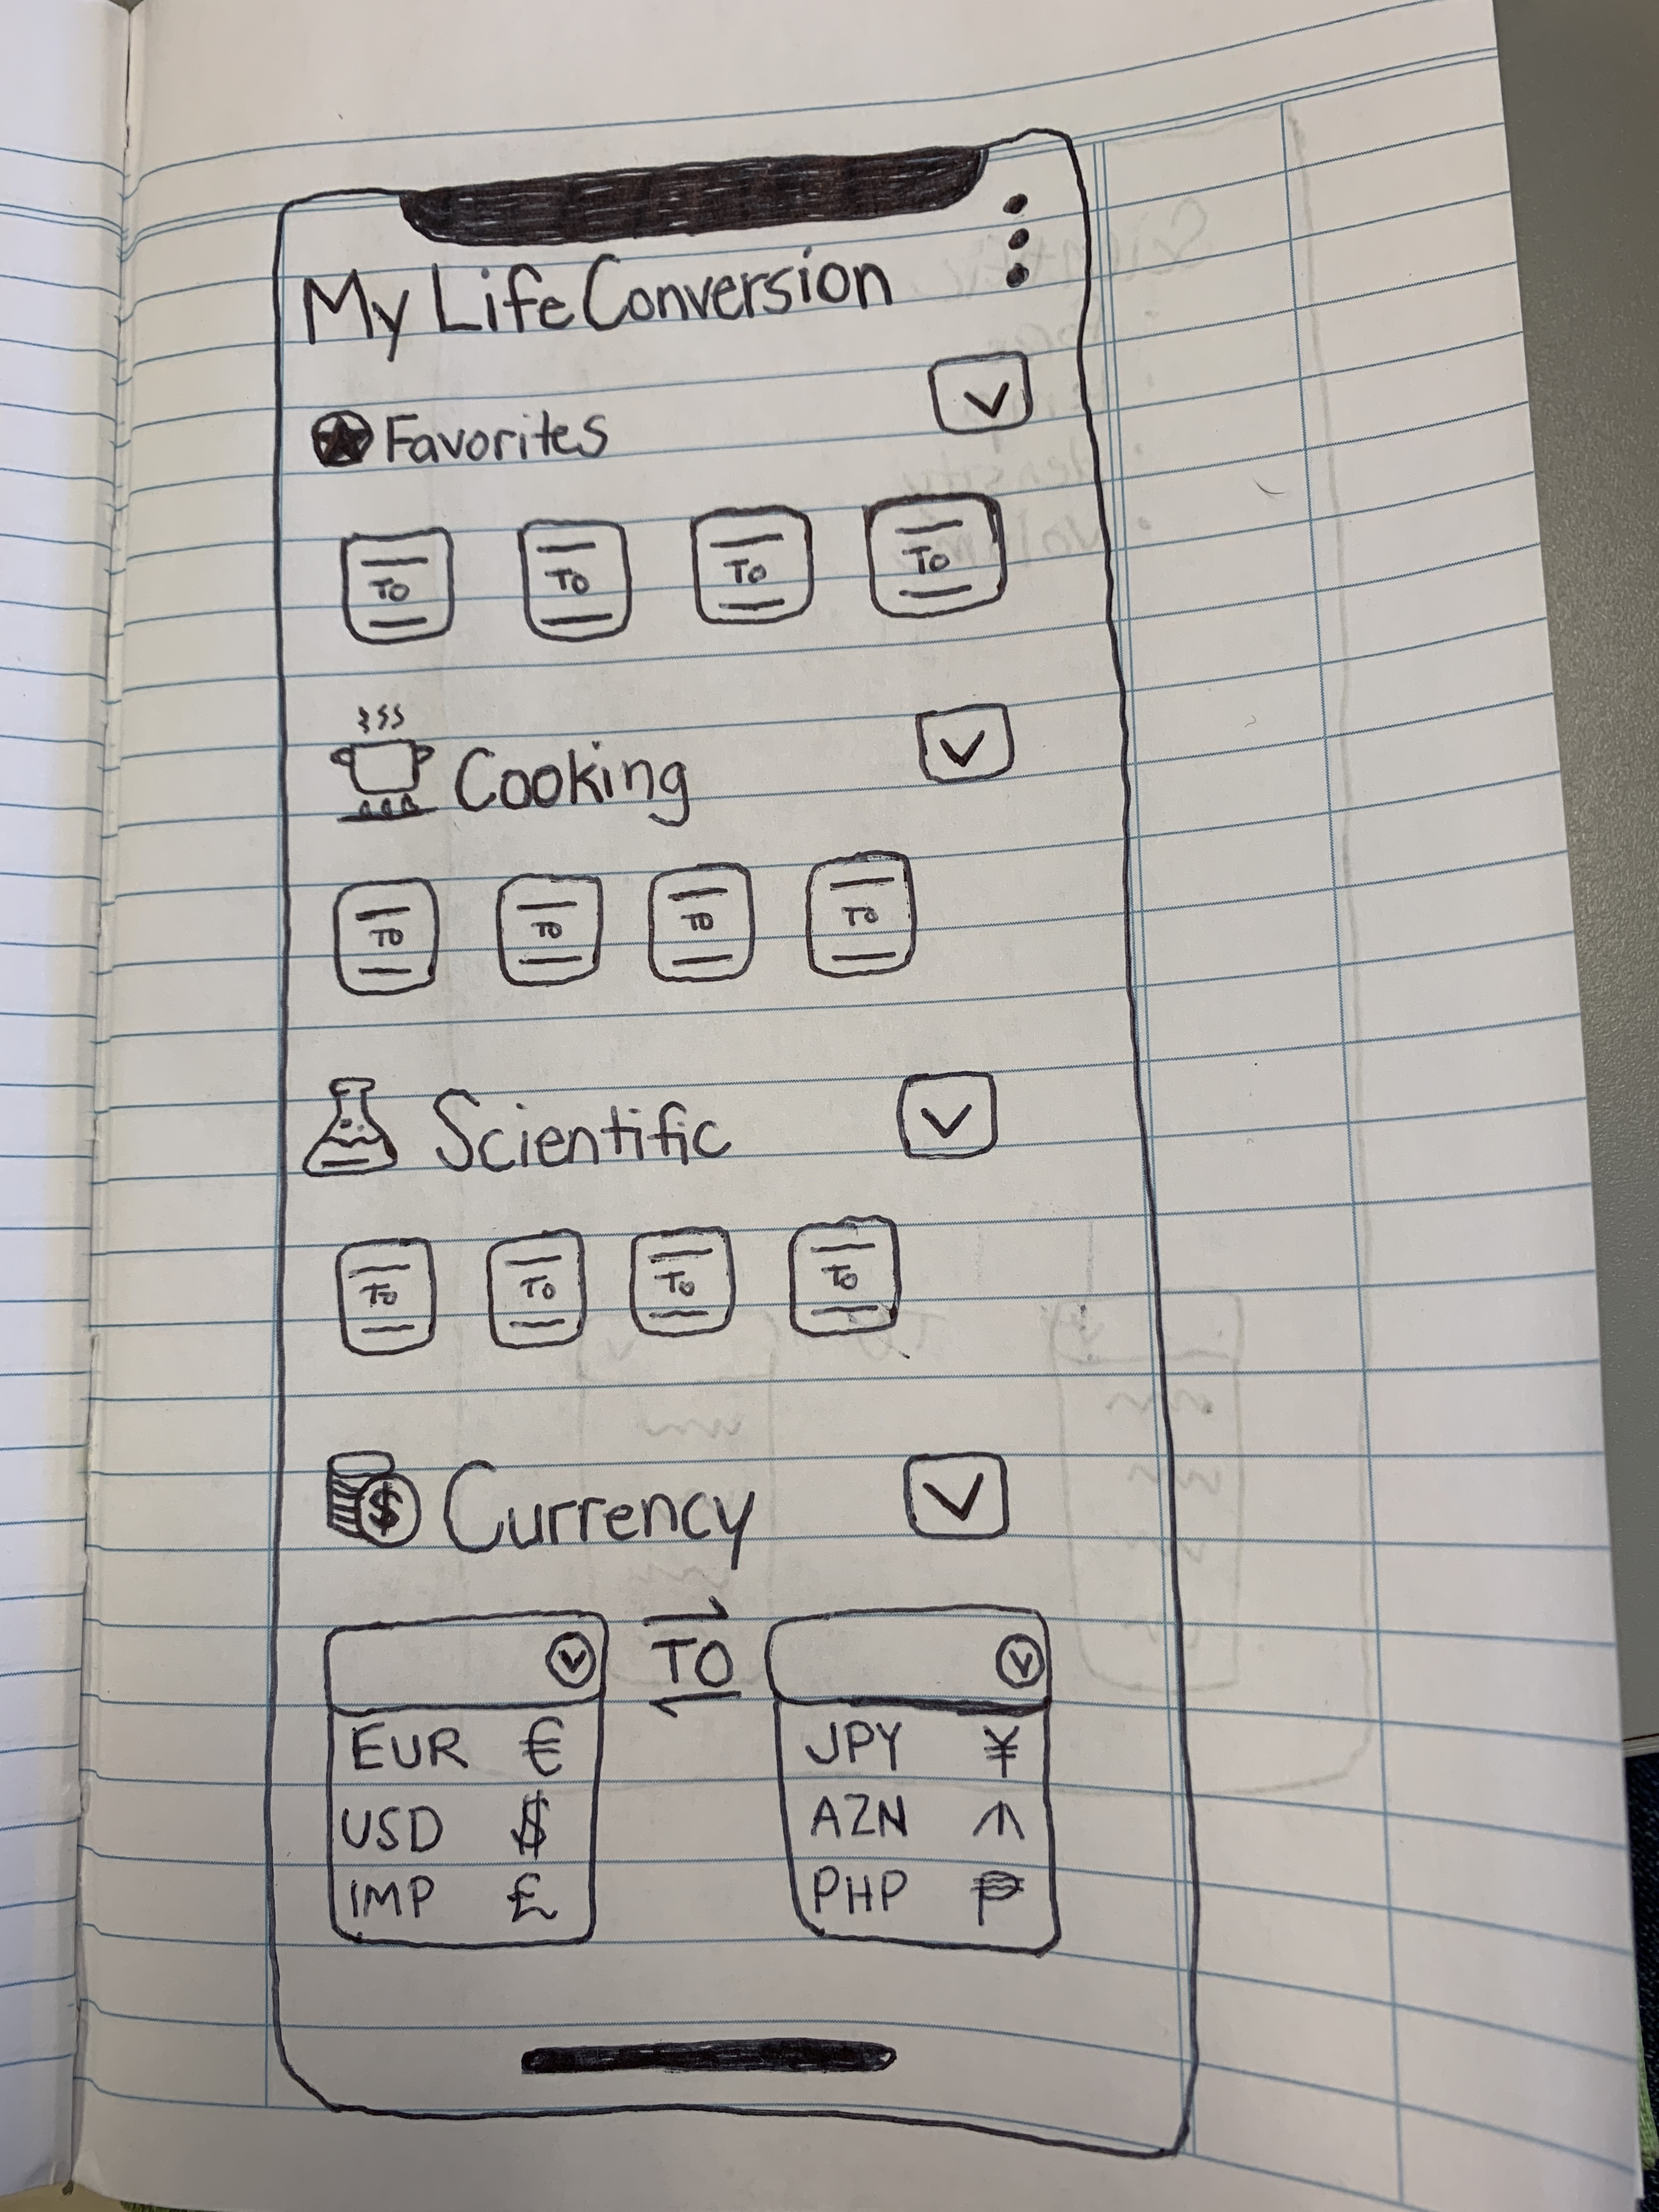 My Life Conversion
Favorites
TO TO TO TO
Cooking
TO TO TO TO
Scientific
TO TO TO TO
$ Currency
TO
EUR €
USD $
IMP £
JPY ¥
AZN ₼
PHP ₱